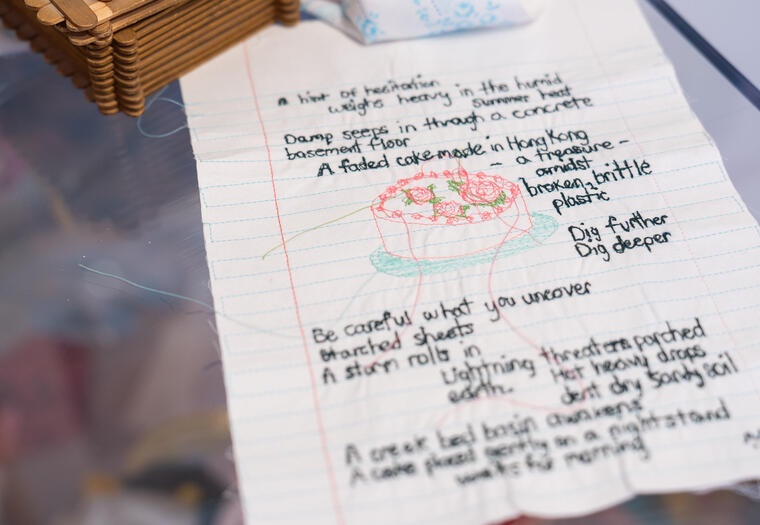 A hint of hesitation
weighs heavy in the humid
summer heat
Damp seeps in through a concrete
basement floor
A faded cake made in Hong Kong
— a treasure —
amidst
broken, brittle
plastic
Dig further
Dig deeper
Be careful what you uncover
Starched sheets
A storm rolls in
Lightning threatens parched
earth. Hot heavy drops
dent dry sandy soil
A creek bed basin awakens
A cake placed gently on a nightstand
waits for morning